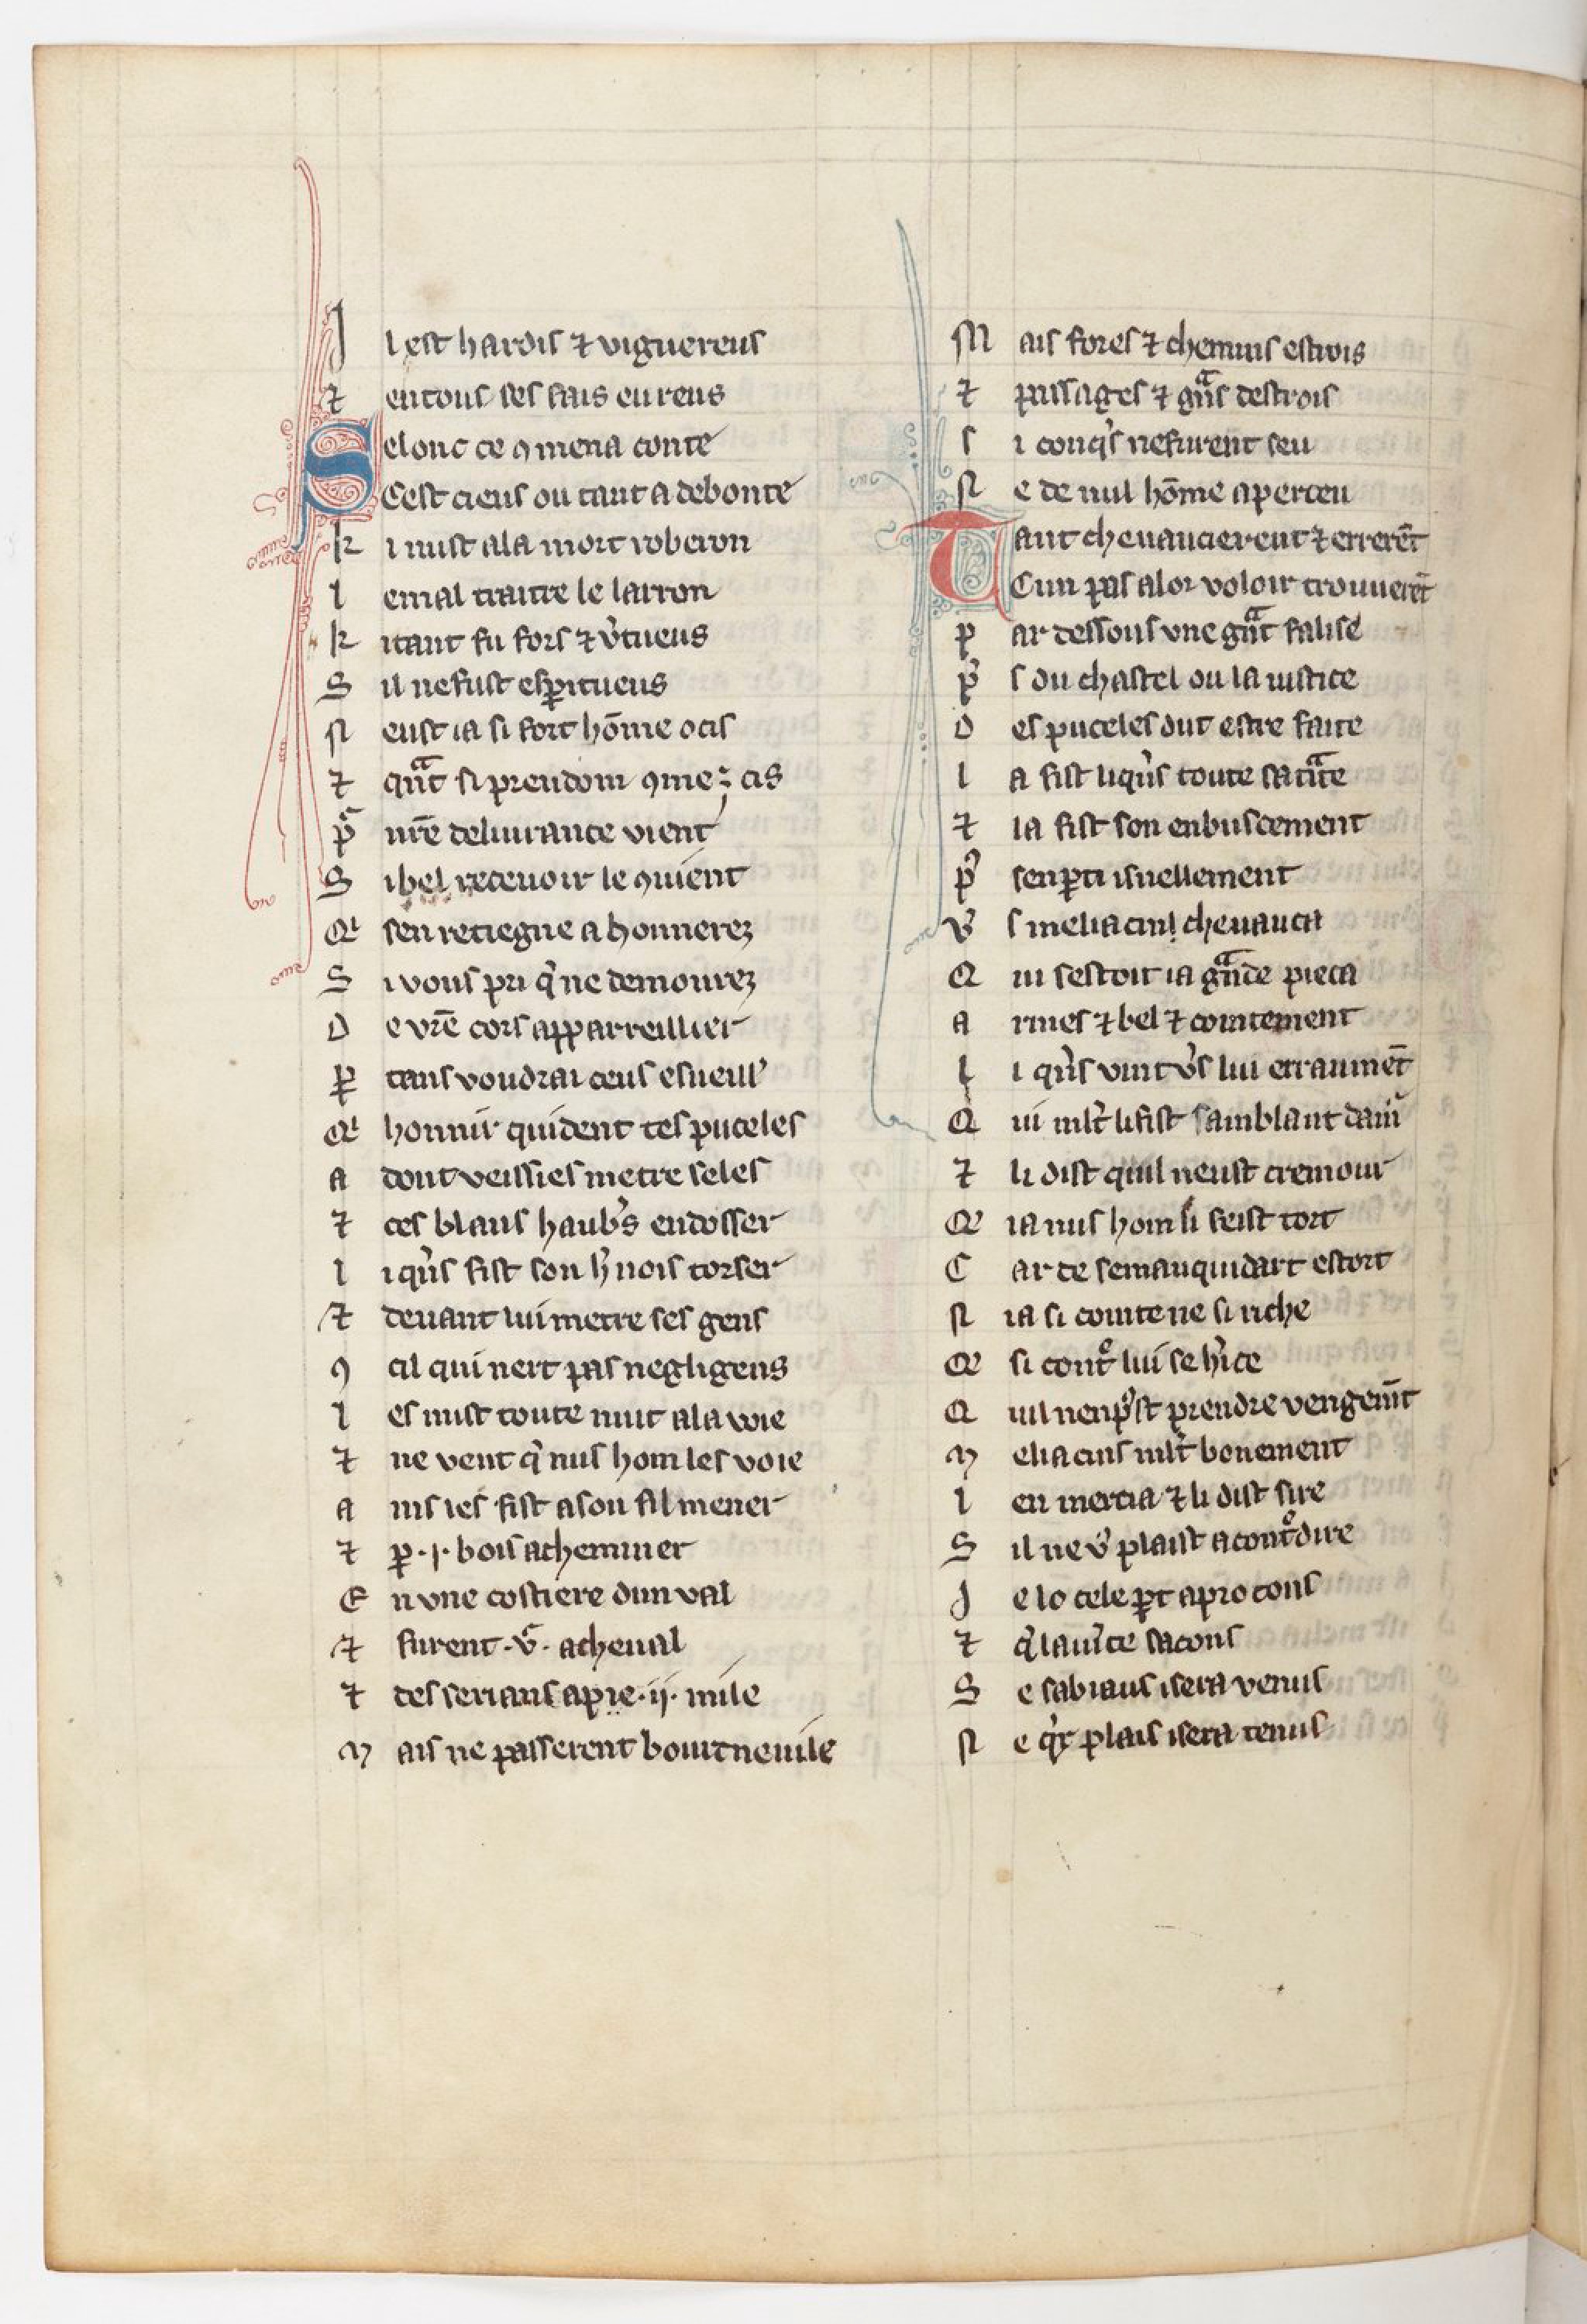 J l est hardis ⁊ viguereus
⁊ en tous ses fais eureus
Selonc ce ꝯ mena conte
Cest cieus ou tant a de bonte
k i mist a la mort roberon
l e mal traitre le larron
k i tant fu fors ⁊ v̉tueus
S il ne fust esꝑitueus
N eust ia si fort hōme ocis
⁊ qn̄t si preudom ꝯme cis
p̄ nrē deliurance vient
S i bel receuoir le ꝯuient
Q̾ sen retiegne a honnerez
S i vous pri q̾ ne demourez
D e vrē cors apparreillier
ꝑ tans voudrai ceus esueill̾
Q̾ honnir quident ces puceles
A dont veissies metre seles
⁊ ces blans haub̾s endosser
l i q̾ns fist son h̾nois torser
⁊ deuant lui metre ses gens
ꝯ cil qui nert pas negligens
l es mist toute nuit a la voie
⁊ ne veut q̾ nus hom les voie
A ins les fist a son fil mener
⁊ ꝑ ·i· bois acheminer
E n vne costiere dun val
⁊ furent ·v̄· a cheual
⁊ des serians a pie ·ii· mile
M ais ne passerent bourc ne uile
M ais fores ⁊ chemins estrois
⁊ passages ⁊ gn̄s destrois
s i conq̾s ne furent seu
N e de nul hōme aperceu
Tant cheuaucierent ⁊ errerēt
Cun pas a lor voloir trouuerēt
p ar dessous vne gn̄t falise
p̾ s du chastel ou la iustice
D es puceles dut estre faite
l a fist li q̾ns toute sa tn̄te
⁊ la fist son enbuscement
p̾ sen ꝑti isnellement
v̾ s meliacin cheuauca
Q ui sestoit ia gn̄de pieca
A rmes ⁊ bel ⁊ cointement
l i q̾ns vint v̾s lui erraumēt
Q ui ml̄t li fist samblant dam̾
⁊ li dist quil neust cremour
Q̾ ia nus hom li feist tort
C ar ce semauquidart estort
N ia si cointe ne si riche
Q̾ si cont̾ lui se h̾ice
Q uil nen p̾st prendre vengem̄t
M eliacins ml̄t bonement
l en mercia ⁊ li dist sire
S il ne v̾ plaist a cont̾dire
J e lo cele ꝑt aprocons
⁊ q̾ lau̾te sacons
S e sabiaus i sera venus
N e q̾x plais i sera tenus